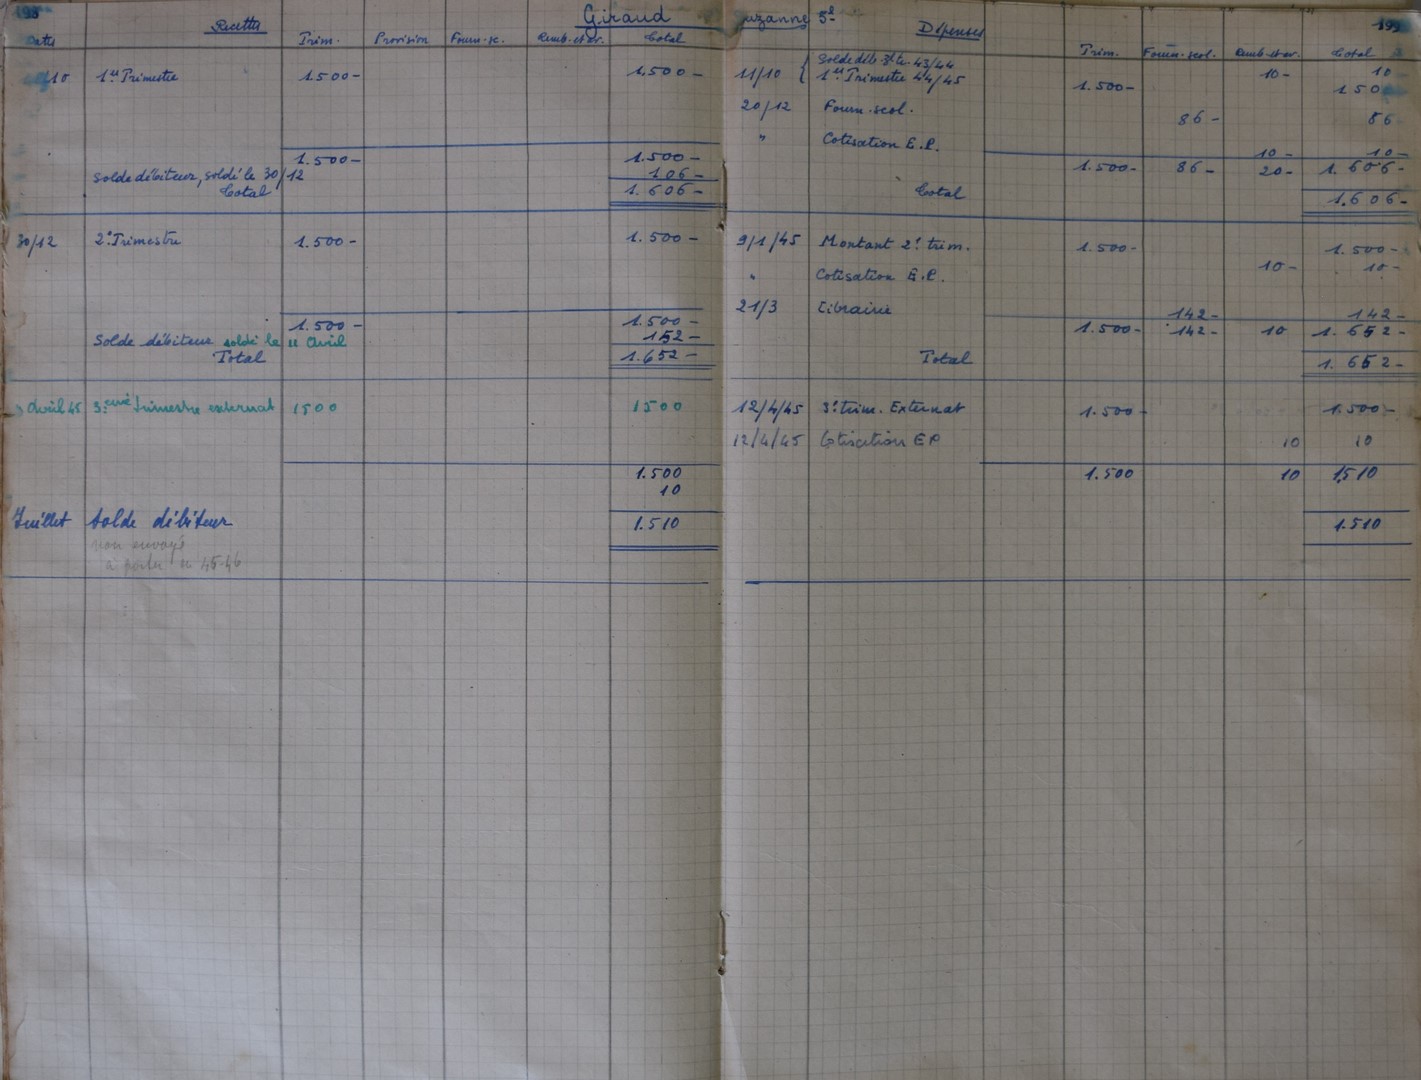 198 Recettes Giraud Suzanne 5e Dépenses 199
Dates Trim. Provision Fourn-sc. Remb.et av. Total Trim. Fourn-scol. Remb.et av. Total
Solde déb. 3e tr. 43/44 10- 10
10 1er Trimestre 1.500- 1.500- 11/10 1er Trimestre 44/45 1.500- 150
20/12 Fourn.scol. 86- 86
" Cotisation E.P. 10- 10-
1.500- 1.500- 1.500- 86- 20- 1.606-
solde débiteur, soldé le 30/12 106-
Total 1.606- Total 1.606-
30/12 2e Trimestre 1.500- 1.500- 9/1/45 Montant 2e trim. 1.500- 1.500-
" Cotisation E.P. 10- 10-
21/3 Librairie 142- 142-
1.500- 1.500- 1.500- 142- 10 1.652-
Solde débiteur soldé le 11 Avril 152-
Total 1.652- Total 1.652-
Avril 45 3.ème trimestre externat 1500 1500 12/4/45 3e trim. Externat 1.500- 1.500-
12/4/45 Cotisation EP 10 10
1.500 1.500 10 1510
10
Juillet Solde débiteur 1.510 1.510
non envoyé
à porter en 45-46